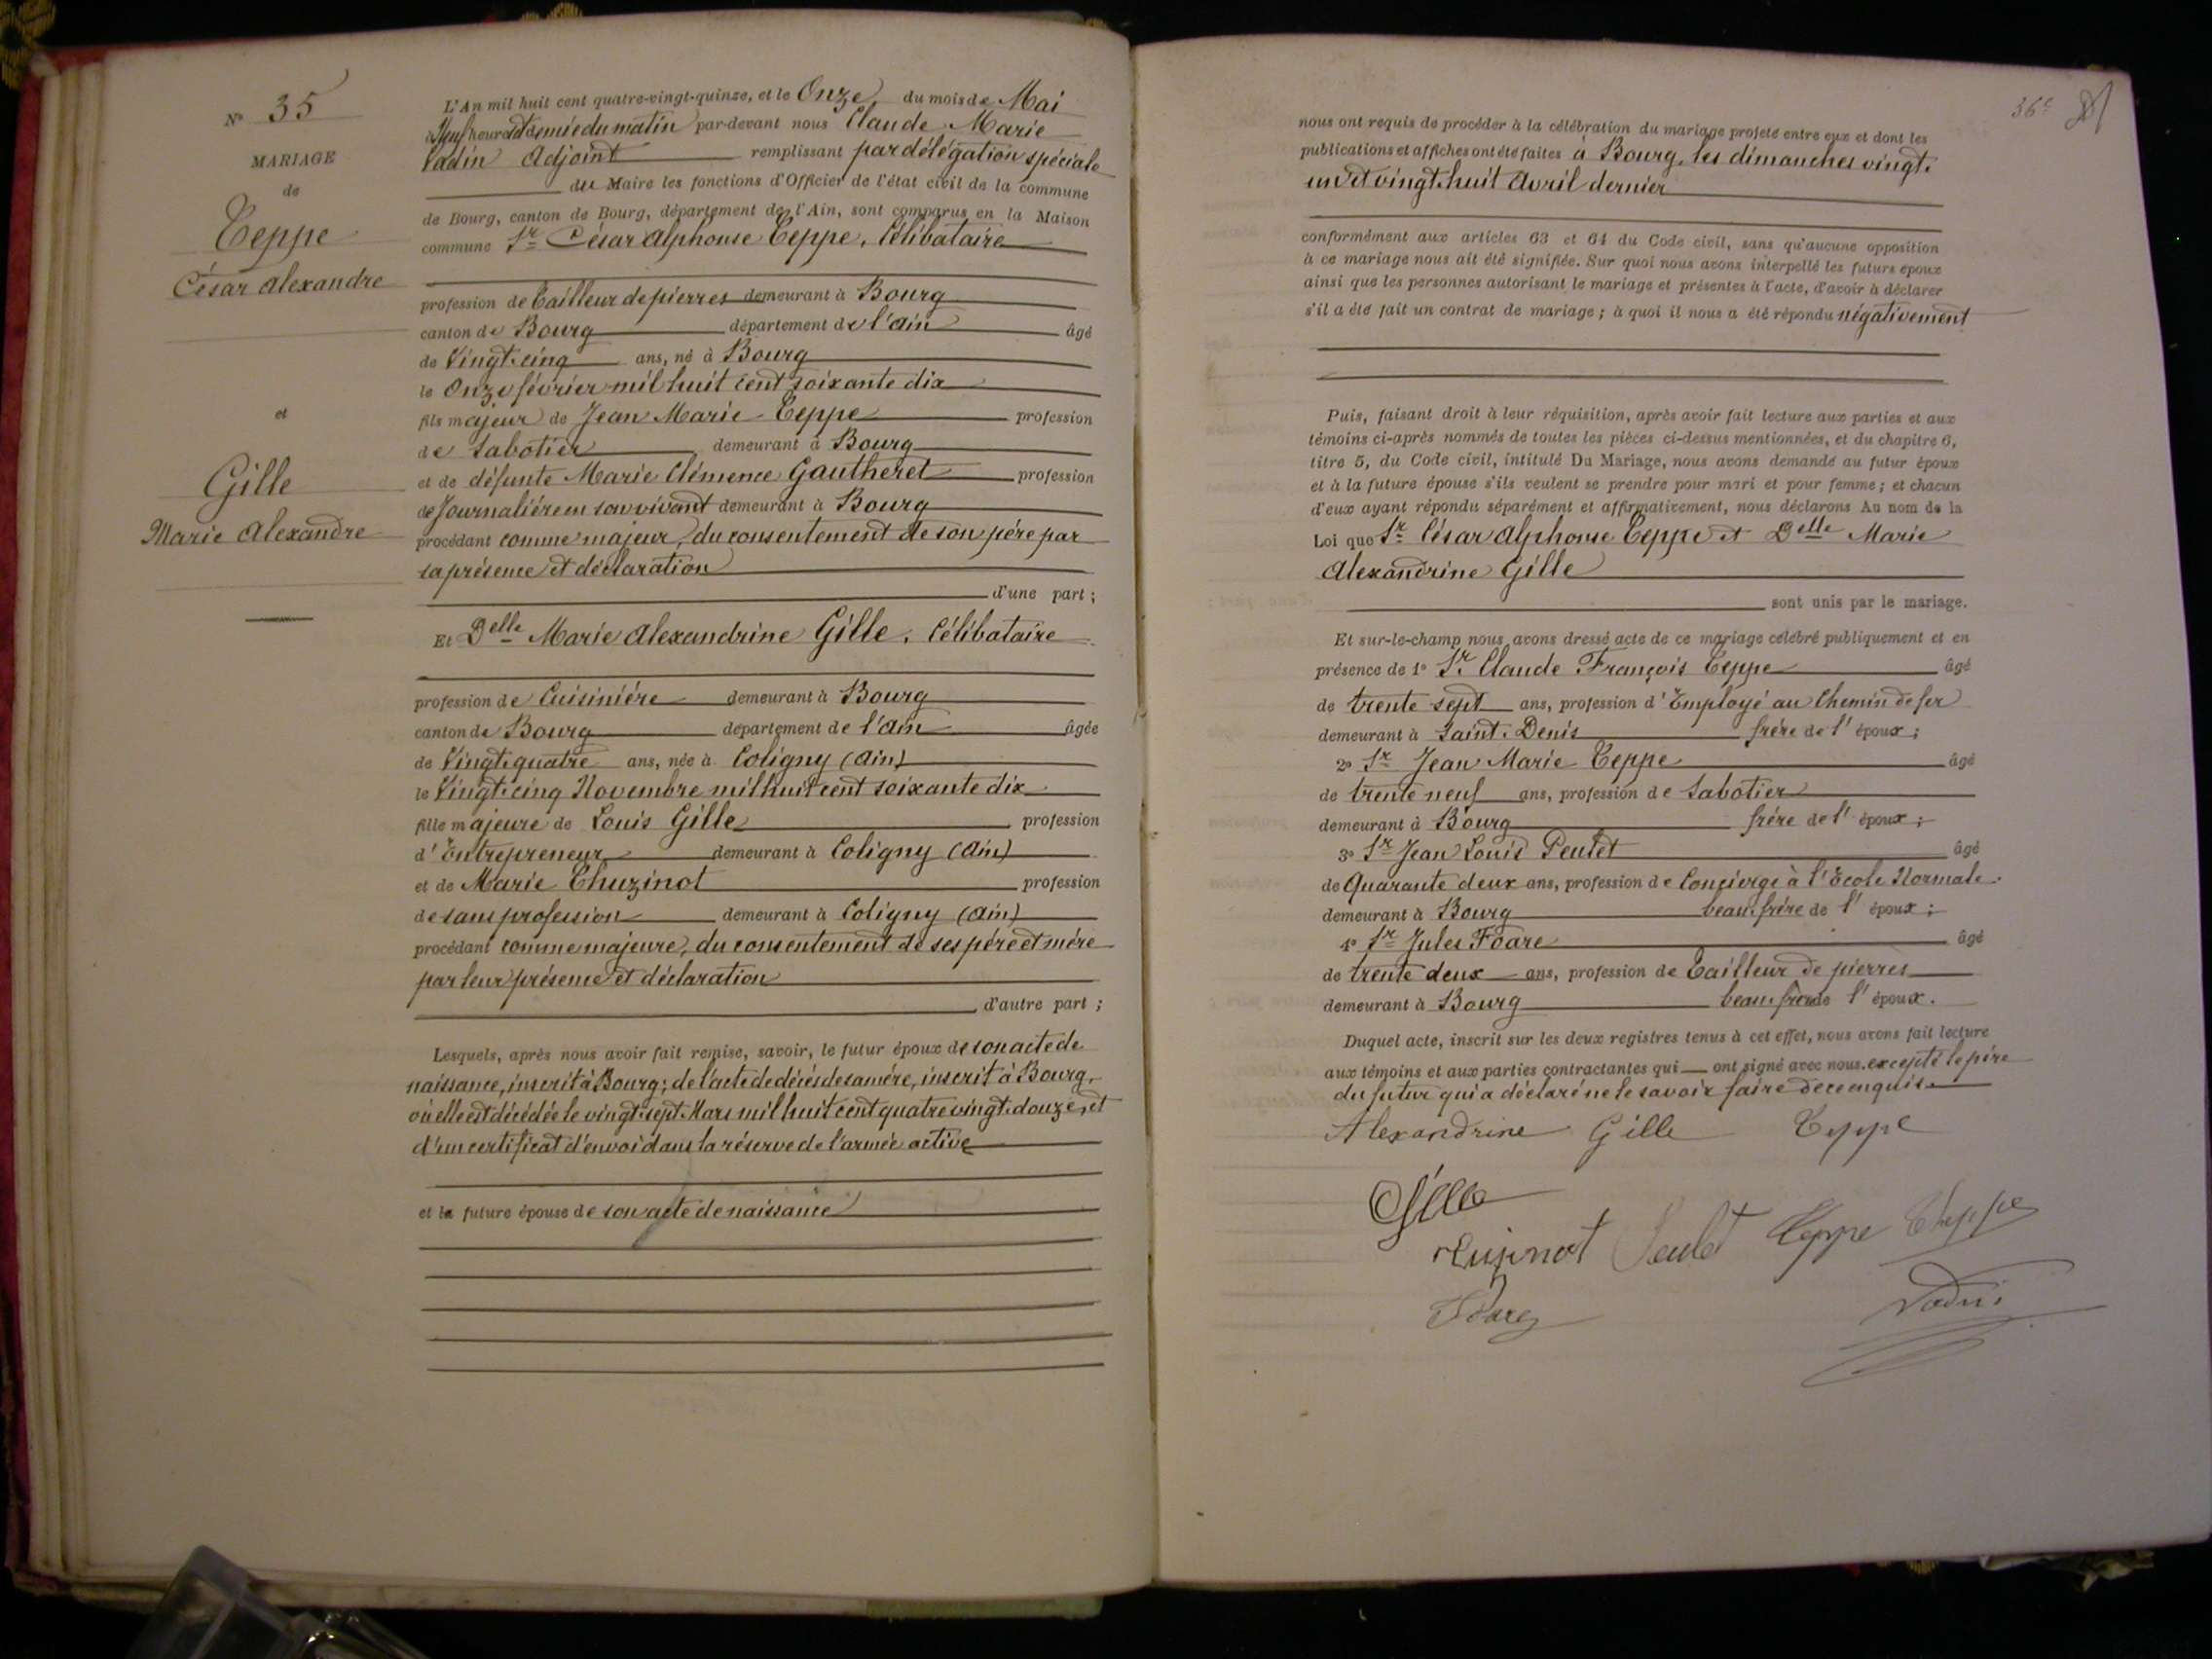 N° 35
MARIAGE
de
Teppe
César Alexandre
et
Gille
Marie Alexandre
L'An mil huit cent quatre-vingt-quinze, et le Onze du mois de Mai
à Neuf heures et demie du matin par-devant nous Claude Marie
Vadin Adjoint remplissant par délégation spéciale
du Maire les fonctions d'Officier de l'état civil de la commune
de Bourg, canton de Bourg, département de l'Ain, sont comparus en la Maison
commune Sr César Alphonse Teppe, Célibataire
profession de Tailleur de pierres demeurant à Bourg
canton de Bourg département de l'Ain âgé
de Vingt-cinq ans, né à Bourg
le Onze février mil huit cent soixante dix
fils majeur de Jean Marie Teppe profession
de Sabotier demeurant à Bourg
et de défunte Marie Clémence Gautheret profession
de Journalière en son vivant demeurant à Bourg
procédant comme majeur, du consentement de son père par
sa présence et déclaration
d'une part ;
Et Delle Marie Alexandrine Gille, Célibataire
profession de Cuisinière demeurant à Bourg
canton de Bourg département de l'Ain âgée
de Vingt-quatre ans, née à Coligny (Ain)
le Vingt-cinq Novembre mil huit cent soixante dix
fille majeure de Louis Gille profession
d'Entrepreneur demeurant à Coligny (Ain)
et de Marie Thuzinot profession
de sans profession demeurant à Coligny (Ain)
procédant comme majeure, du consentement de ses père et mère
par leur présence et déclaration
d'autre part ;
Lesquels, après nous avoir fait remise, savoir, le futur époux de son acte de
naissance, inscrit à Bourg; de l'acte de décès de sa mère, inscrit à Bourg,
où elle est décédée le vingt-sept Mars mil huit cent quatre vingt-douze, et
d'un certificat d'envoi dans la réserve de l'armée active
et la future épouse de son acte de naissance
36e
nous ont requis de procéder à la célébration du mariage projeté entre eux et dont les
publications et affiches ont été faites à Bourg, les dimanches vingt-
un et vingt-huit Avril dernier
conformément aux articles 63 et 64 du Code civil, sans qu'aucune opposition
à ce mariage nous ait été signifiée. Sur quoi nous avons interpellé les futurs époux
ainsi que les personnes autorisant le mariage et présentes à l'acte, d'avoir à déclarer
s'il a été fait un contrat de mariage ; à quoi il nous a été répondu négativement
Puis, faisant droit à leur réquisition, après avoir fait lecture aux parties et aux
témoins ci-après nommés de toutes les pièces ci-dessus mentionnées, et du chapitre 6,
titre 5, du Code civil, intitulé Du Mariage, nous avons demandé au futur époux
et à la future épouse s'ils veulent se prendre pour mari et pour femme ; et chacun
d'eux ayant répondu séparément et affirmativement, nous déclarons Au nom de la
Loi que Sr César Alphonse Teppe et Delle Marie
Alexandrine Gille
sont unis par le mariage.
Et sur-le-champ nous avons dressé acte de ce mariage célébré publiquement et en
présence de 1° Sr Claude François Teppe âgé
de trente sept ans, profession d'Employé au Chemin de fer
demeurant à Saint-Denis frère de l'époux ;
2° Sr Jean Marie Teppe âgé
de trente neuf ans, profession de Sabotier
demeurant à Bourg frère de l'époux ;
3° Sr Jean Louis Peulet âgé
de Quarante deux ans, profession de Concierge à l'École Normale
demeurant à Bourg beau-frère de l'époux ;
4° Sr Jules Foare âgé
de trente deux ans, profession de Tailleur de pierres
demeurant à Bourg beau-frère de l'époux.
Duquel acte, inscrit sur les deux registres tenus à cet effet, nous avons fait lecture
aux témoins et aux parties contractantes qui ont signé avec nous, excepté le père
du futur qui a déclaré ne le savoir faire de ce enquis.
Alexandrine Gille Teppe
Gille
Peulet Teppe Theppe
Foare Vadin